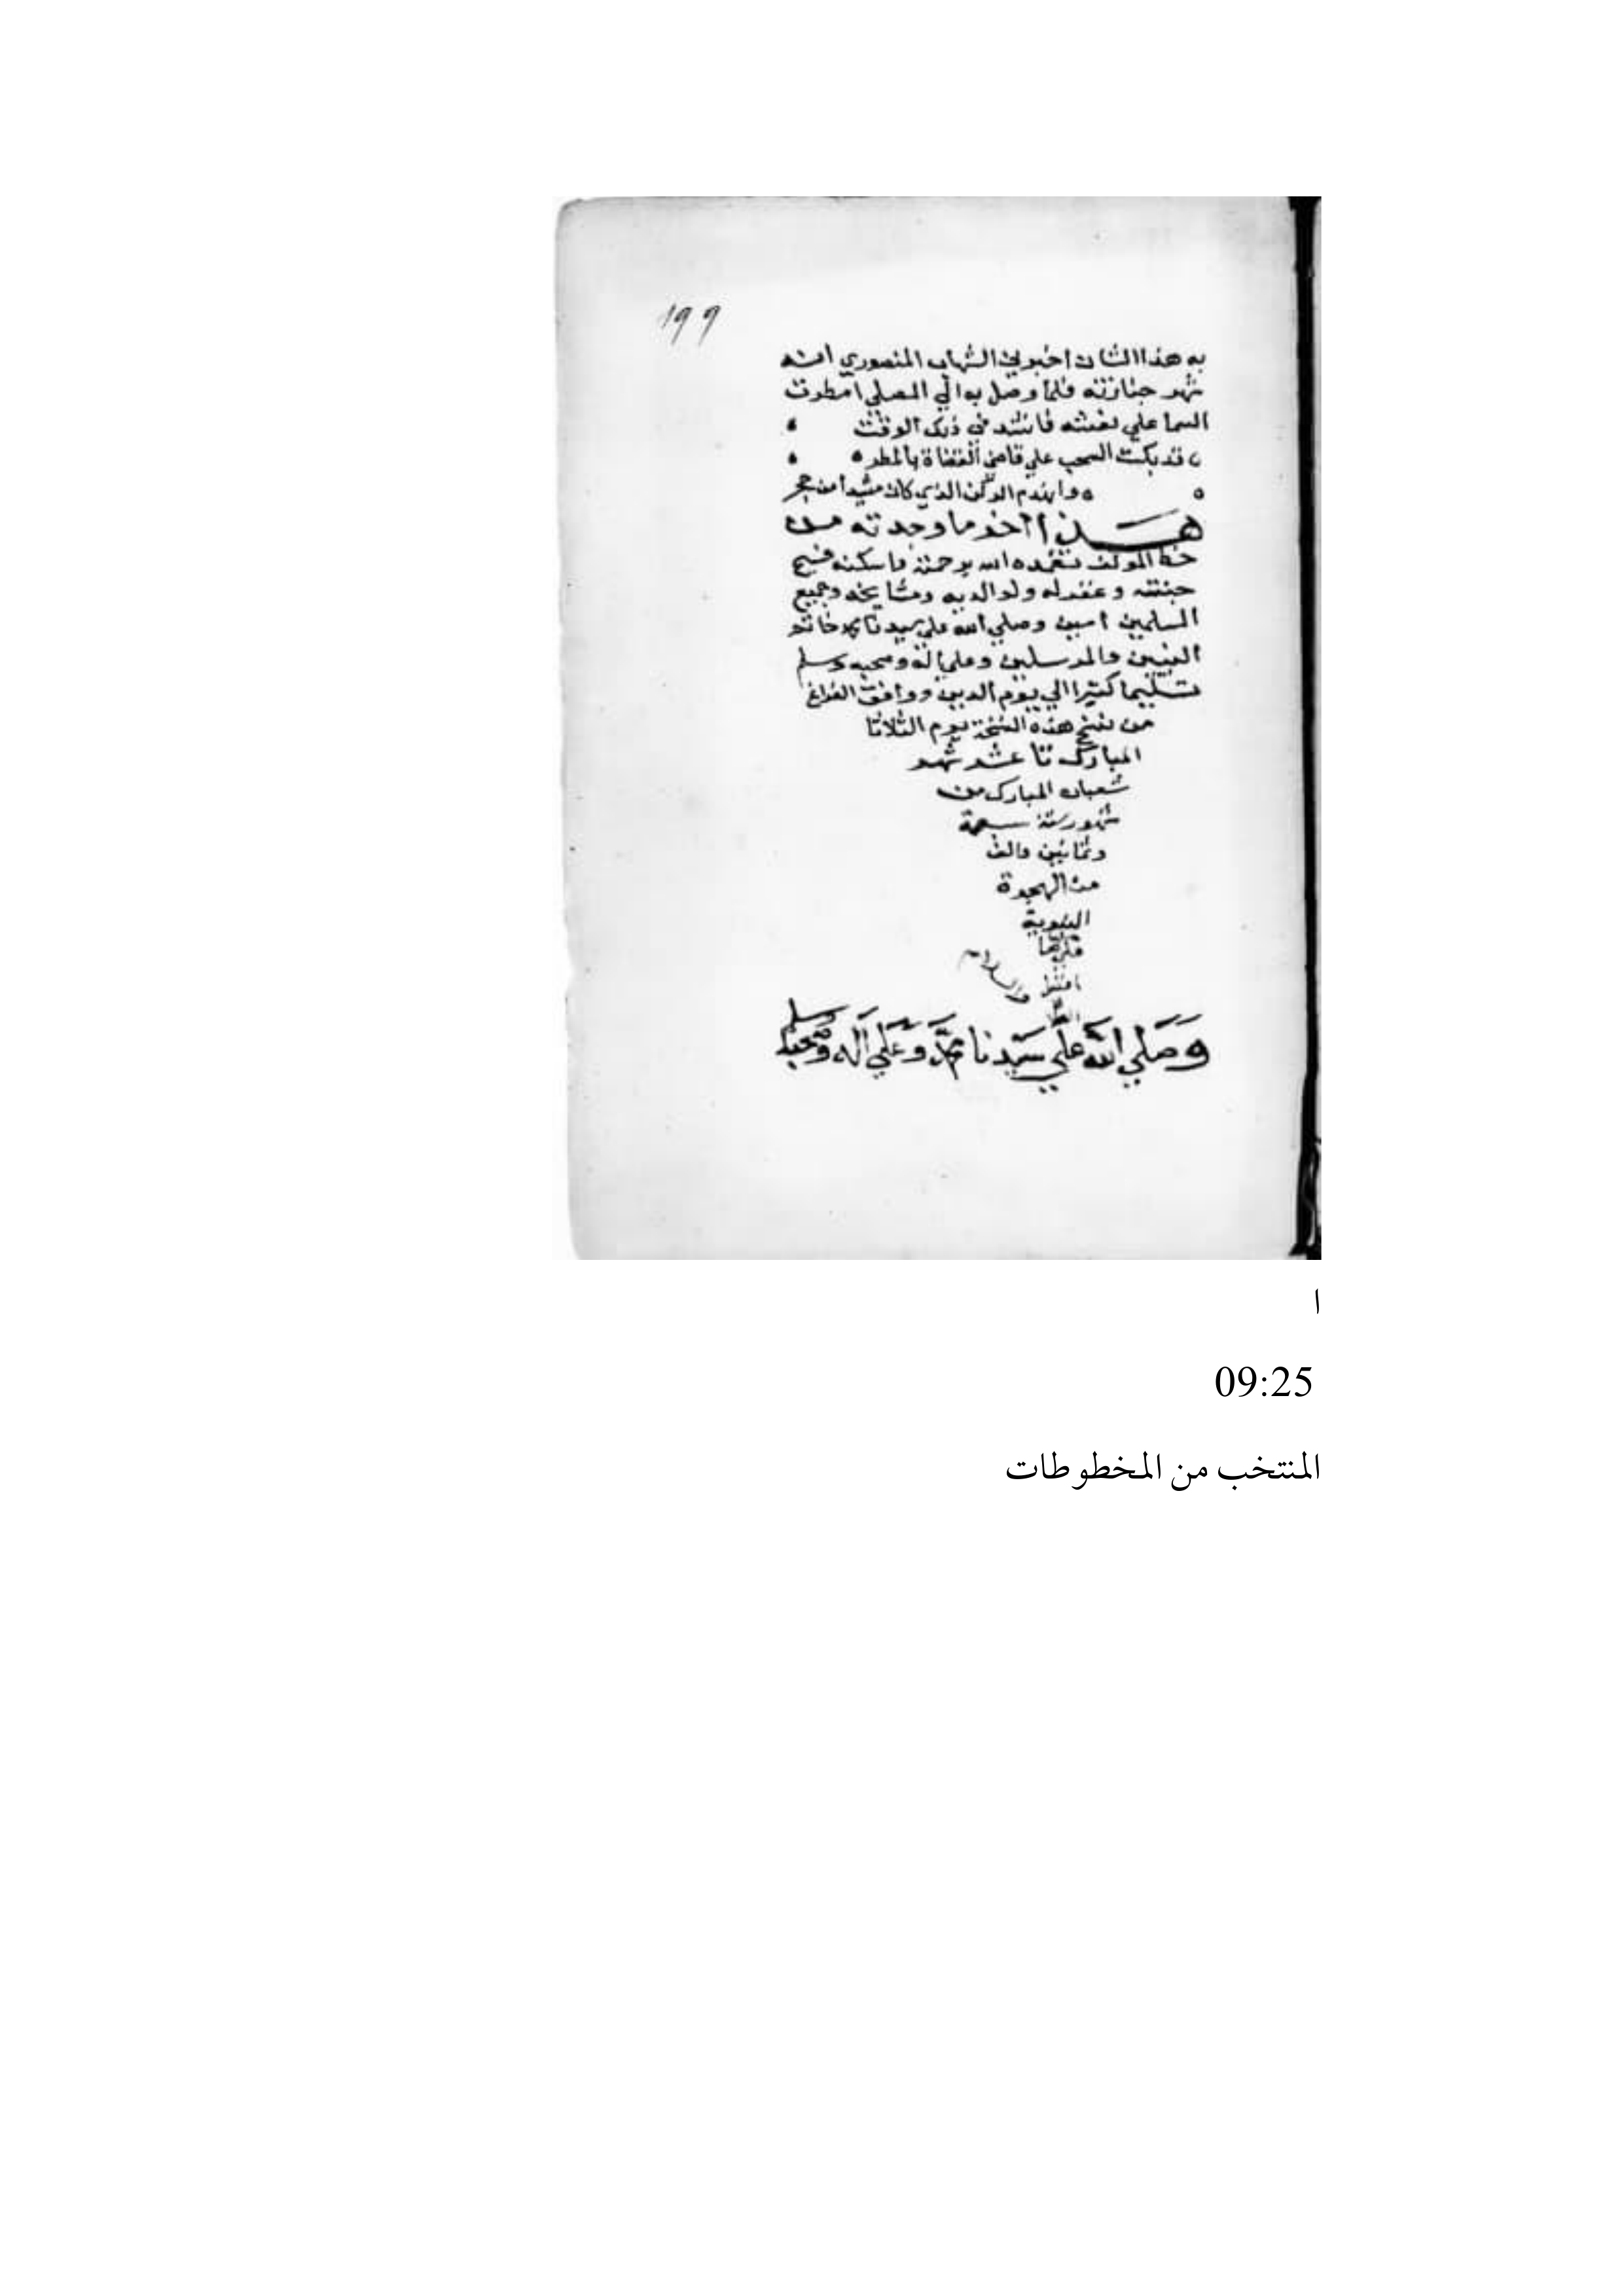 199
به هذا الشان اخبرني الشهاب المنصوري انه
شهد جنازته فلما وصل به الي المصلي امطرت
السما علي نعشه فانشد في ذلك الوقت
قد بكت السحب علي قاضي القضاة بالمطر
وانهدم الركن الذي كان مشيدا من حجر
هذا اخر ما وجدته من
خط المولف تغمده الله برحمته واسكنه فسيح
جنته وغفر له ولوالديه ومشايخه وجميع
المسلمين امين وصلي الله علي سيدنا محمد خاتم
النبيين والمرسلين وعلي اله وصحبه وسلم
تسليما كثيرا الي يوم الدين ووافق الفراغ
من نسخ هذه النسخة يوم الثلاثا
المبارك ثا عشر شهر
شعبان المبارك من
شهور سنة سبعة
وثمانين والف
من الهجرة
النبوية
افضل
والسلام
وصلي الله علي سيدنا محمد وعلي اله وصحبه وسلم
ا
09:25
المنتخب من المخطوطات